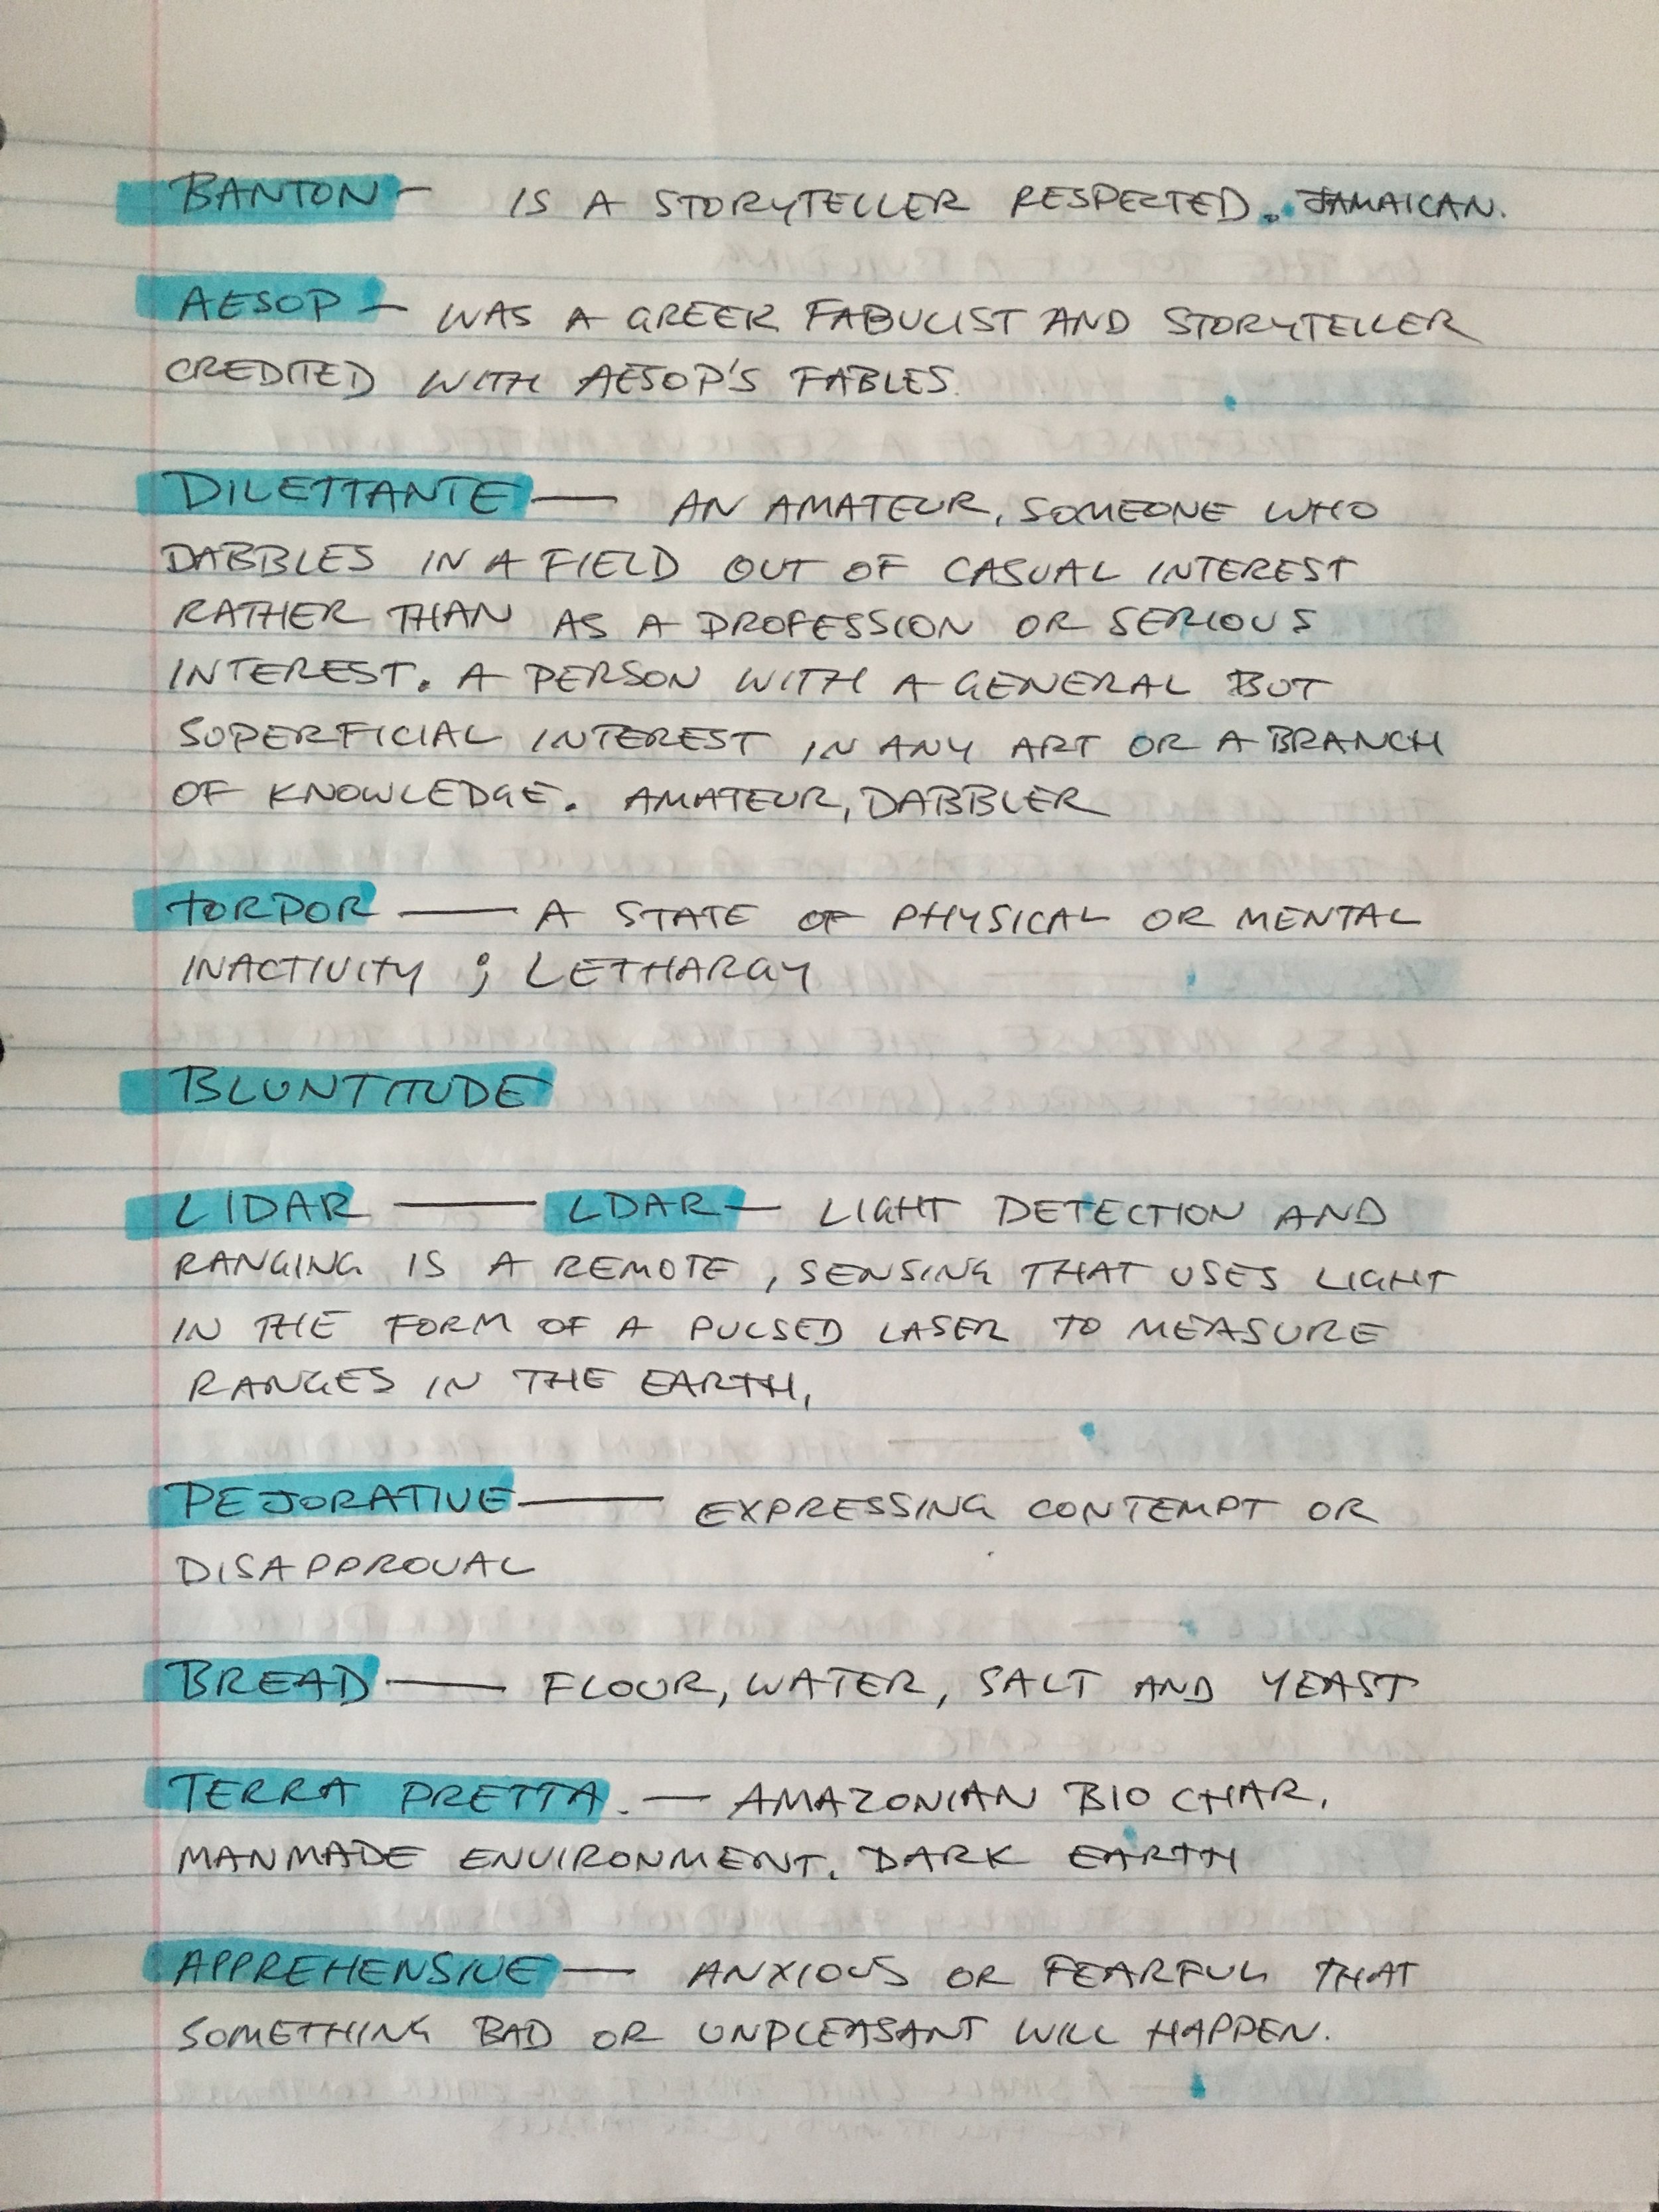 BANTON — IS A STORYTELLER RESPECTED. JAMAICAN.
AESOP — WAS A GREEK FABULIST AND STORYTELLER
CREDITED WITH AESOP'S FABLES.
DILETTANTE — AN AMATEUR, SOMEONE WHO
DABBLES IN A FIELD OUT OF CASUAL INTEREST
RATHER THAN AS A PROFESSION OR SERIOUS
INTEREST. A PERSON WITH A GENERAL BUT
SUPERFICIAL INTEREST IN ANY ART OR A BRANCH
OF KNOWLEDGE. AMATEUR, DABBLER
TORPOR — A STATE OF PHYSICAL OR MENTAL
INACTIVITY ; LETHARGY
BLUNTITUDE
LIDAR — LDAR — LIGHT DETECTION AND
RANGING IS A REMOTE, SENSING THAT USES LIGHT
IN THE FORM OF A PULSED LASER TO MEASURE
RANGES IN THE EARTH,
PEJORATIVE — EXPRESSING CONTEMPT OR
DISAPPROVAL
BREAD — FLOUR, WATER, SALT AND YEAST
TERRA PRETTA. — AMAZONIAN BIO CHAR,
MANMADE ENVIRONMENT. DARK EARTH
APPREHENSIVE — ANXIOUS OR FEARFUL THAT
SOMETHING BAD OR UNPLEASANT WILL HAPPEN.